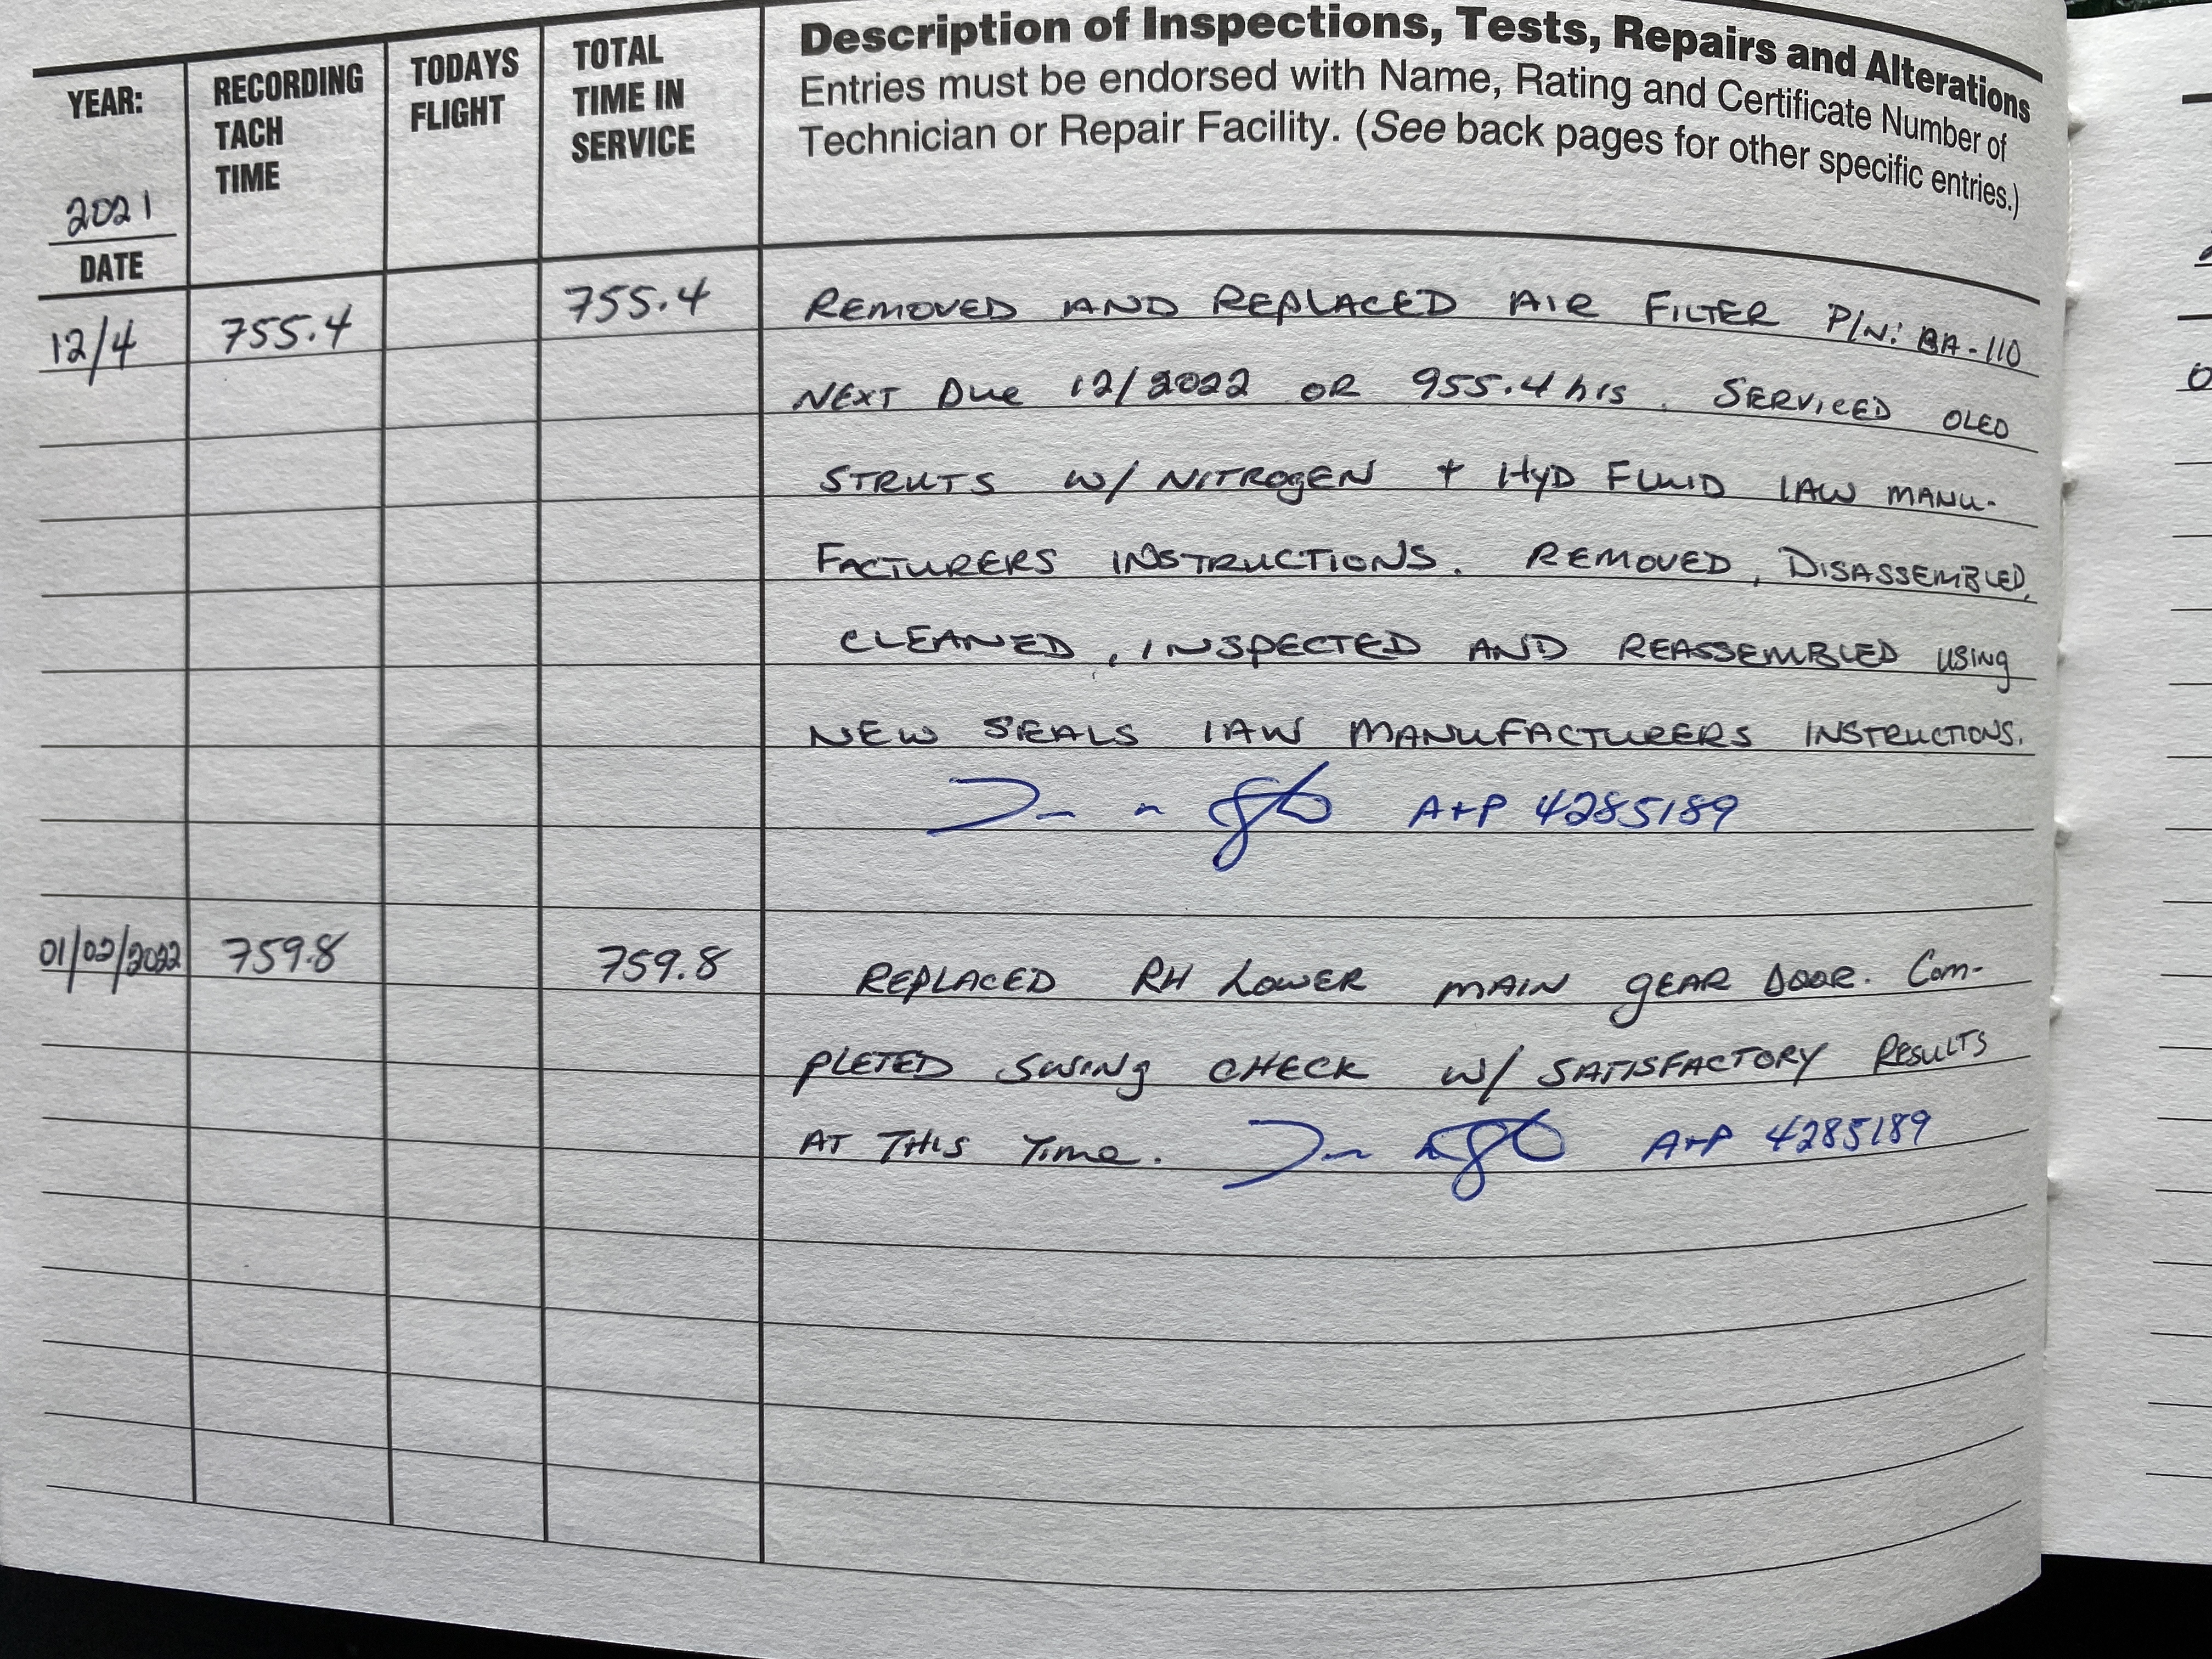 Description of Inspections, Tests, Repairs and Alterations
Entries must be endorsed with Name, Rating and Certificate Number of
Technician or Repair Facility. (See back pages for other specific entries.)
YEAR:
2021
DATE
RECORDING
TACH
TIME
TODAYS
FLIGHT
TOTAL
TIME IN
SERVICE
12/4 755.4 755.4 REMOVED AND REPLACED AIR FILTER P/N: BA-110
NEXT Due 12/2022 OR 955.4 hrs. SERVICED OLEO
STRUTS W/ NITROGEN + HYD FLUID IAW MANU-
FACTURERS INSTRUCTIONS. REMOVED, DISASSEMBLED,
CLEANED, INSPECTED AND REASSEMBLED USING
NEW SEALS IAW MANUFACTURERS INSTRUCTIONS.
A+P 4285189
01/02/2022 759.8 759.8 REPLACED RH LOWER MAIN GEAR DOOR. Com-
PLETED SWING CHECK W/ SATISFACTORY RESULTS
AT THIS TIME. A+P 4285189